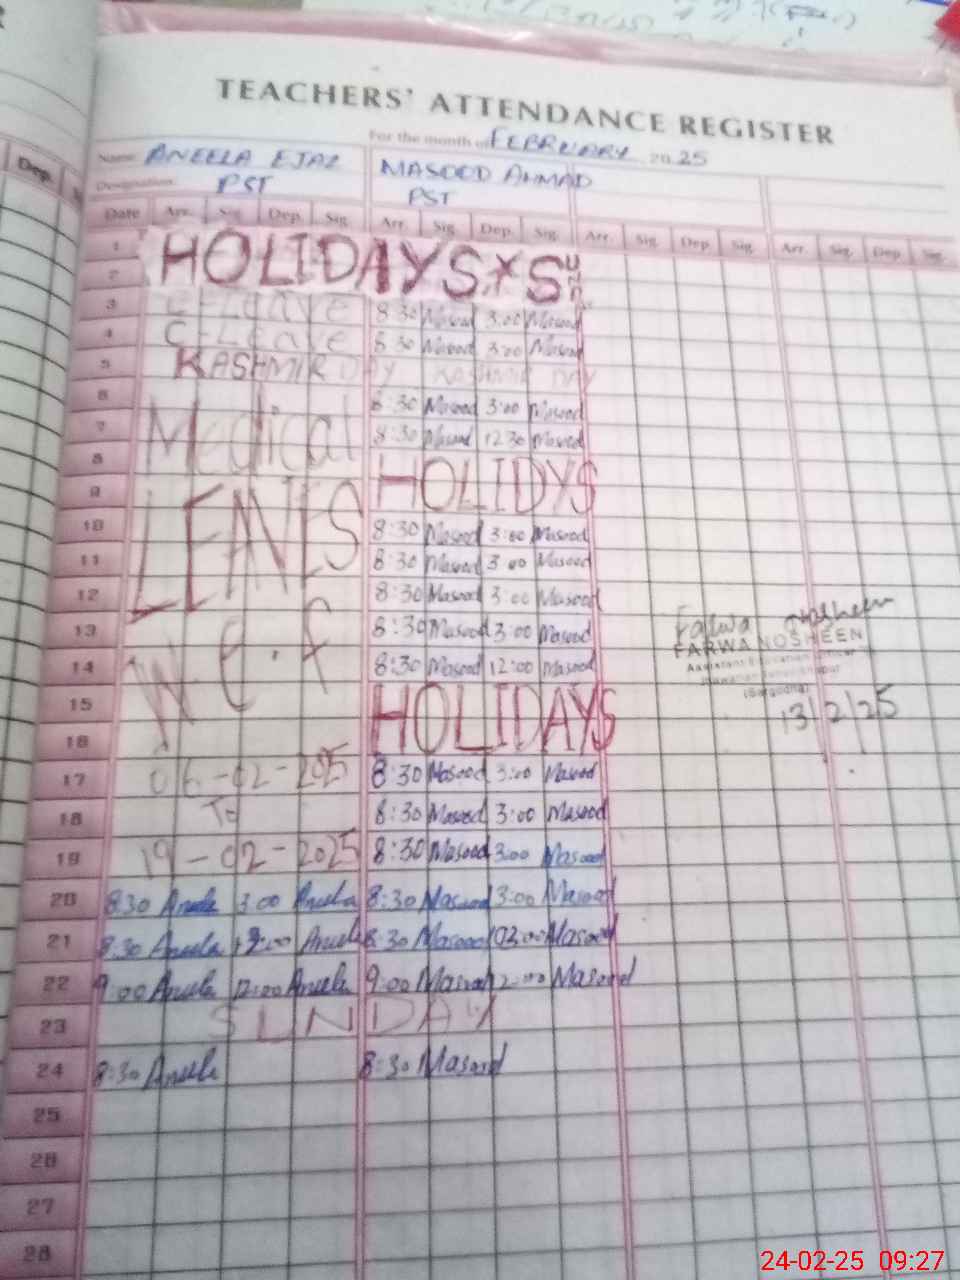 TEACHERS' ATTENDANCE REGISTER
For the month of FEBRUARY 2025
Name: ANEELA EJAZ MASOOD AHMAD
Designation: PST PST
Date Arr. Sig. Dep. Sig. Arr. Sig. Dep. Sig. Arr. Sig. Dep. Sig. Arr. Sig. Dep. Sig.
1
2 HOLIDAYS * Sun.
3 C-Leave 8:30 Masood 3:00 Masood
4 C-Leave 8:30 Masood 3:00 Masood
5 KASHMIR DAY KASHMIR DAY
6 8:30 Masood 3:00 Masood
7 Medical 8:30 Masood 12:30 Masood
8
9 HOLIDYS
10 LEAVES 8:30 Masood 3:00 Masood
11 8:30 Masood 3:00 Masood
12 8:30 Masood 3:00 Masood
13 8:30 Masood 3:00 Masood Farwa Nosheen
FARWA NOSHEEN
14 w e . f 8:30 Masood 12:00 Masood
Assistant Education Officer
(Sargodha)
15 HOLIDAYS 13/2/25
16
17 06-02-2025 8:30 Masood 3:00 Masood
18 To 8:30 Masood 3:00 Masood
19 19-02-2025 8:30 Masood 3:00 Masood
20 8:30 Aneela 3:00 Aneela 8:30 Masood 3:00 Masood
21 8:30 Aneela Aneela 8:30 Masood 03:00 Masood
22 9:00 Aneela 12:00 Aneela 9:00 Masood 12:00 Masood
23 SUNDAY
24 8:30 Aneela 8:30 Masood
25
26
27
28
Dep.
24-02-25 09:27